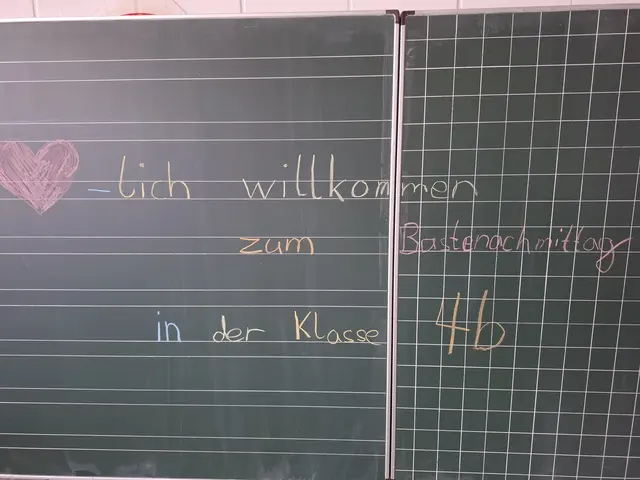 -lich willkommen
zum Bastenachmittag
in der Klasse 4b